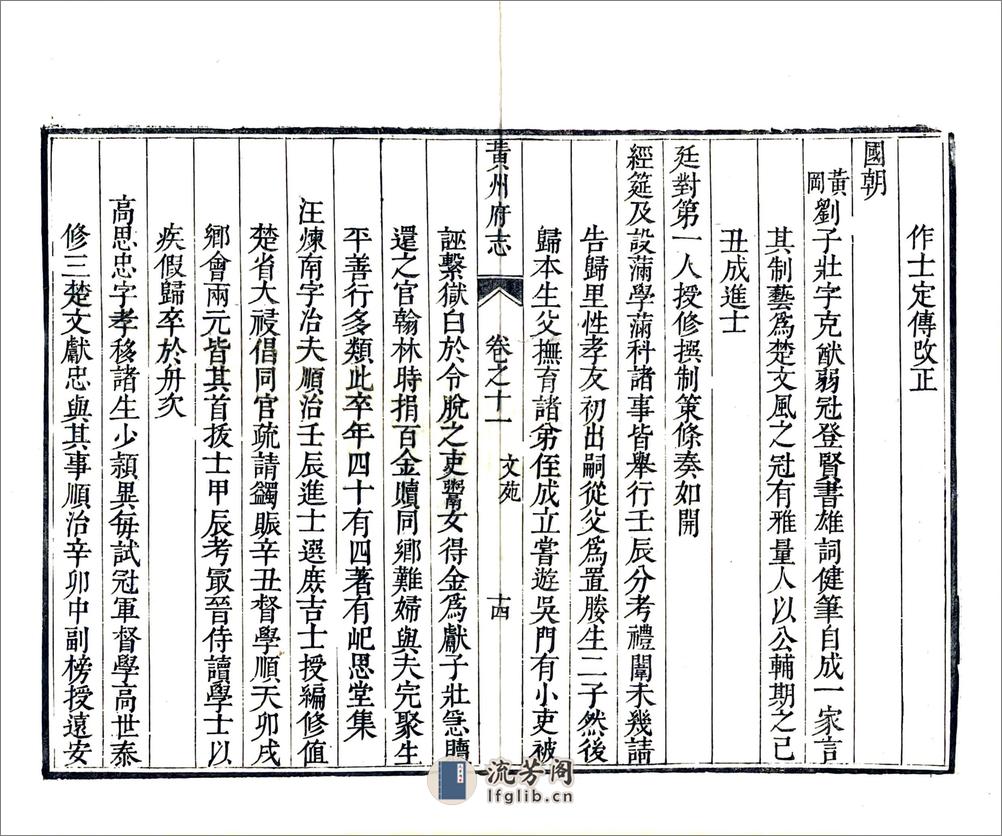 作士定傳改正
國朝
黃岡劉子壯字克猷弱冠登賢書雄詞健筆自成一家言
其制藝爲楚文風之冠有雅量人以公輔期之己
丑成進士
廷對第一人授修撰制策條奏如開
經筵及設滿學滿科諸事皆舉行壬辰分考禮闈未幾請
告歸里性孝友初出嗣從父爲置媵生二子然後
歸本生父撫育諸弟侄成立嘗遊吳門有小吏被
黃州府志
卷之十一
文苑
十四
誣繫獄白於令脫之吏鬻女得金爲獻子壯急贖
還之官翰林時捐百金贖同鄉難婦與夫完聚生
平善行多類此卒年四十有四著有屺思堂集
汪煉南字冶夫順治壬辰進士選庶吉士授編修值
楚省大祲倡同官疏請蠲賑辛丑督學順天卯戌
鄉會兩元皆其首拔士甲辰考最晉侍讀學士以
疾假歸卒於舟次
高思忠字孝移諸生少穎異每試冠軍督學高世泰
修三楚文獻忠與其事順治辛卯中副榜授遠安
流芳阁
lfglib.cn